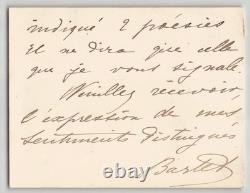 indiqué 2 poésies
et ne dira que celle
que je vous signale.
Veuillez recevoir,
l'expression de mes
sentiments distingués
Bartet